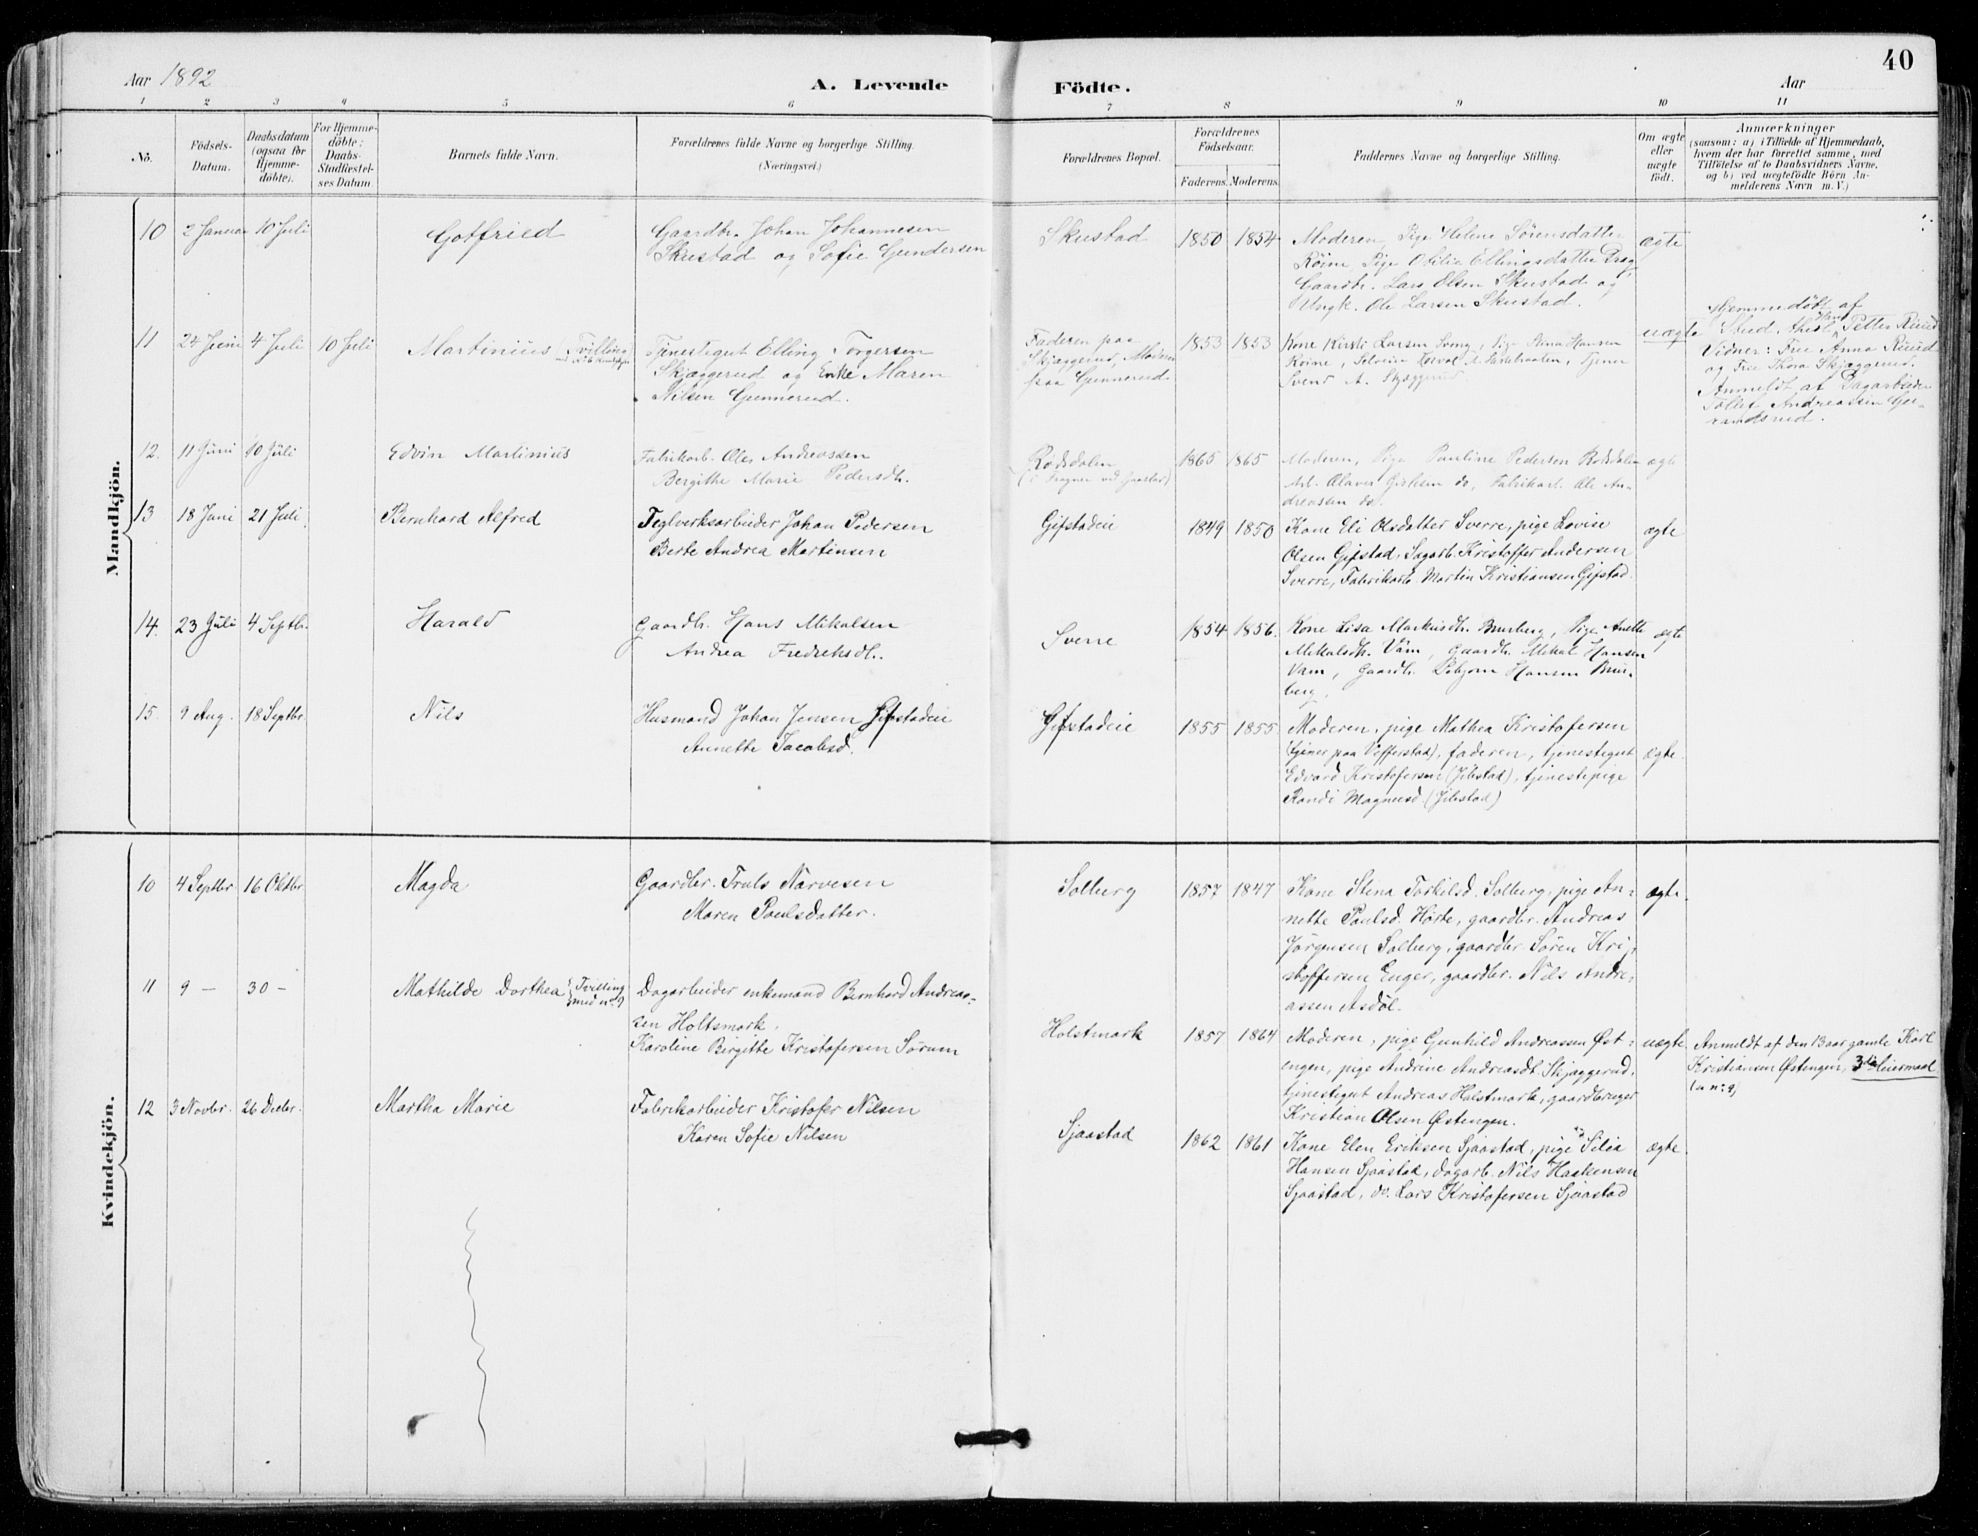 40
Aar 1892
A. Levende
Födte.
Aar
1 2 3 4 5 6 7 8 9 10 11
Nö.
Födsels-
Datum.
Daabsdatum
(ogsaa for
Hjemme-
döbte).
For Hjemme-
döbte:
Daabs-
Stadfæstel-
ses Datum
Barnets fulde Navn.
Forældrenes fulde Navne og borgerlige Stilling.
(Næringsvei.)
Forældrenes Bopæl.
Forældrenes
Födselsaar.
Faderens. Moderens.
Faddernes Navne og borgerlige Stilling.
Om ægte
eller
uægte
födt.
Anmærkninger
(saasom: a) i Tilfælde af Hjemmedaab,
hvem der har forrettet samme, med
Tilföielse af to Daabsvidners Navne,
og b) ved uægtefödte Börn An-
melderens Navn m. V.)
Mandkjön.
10
2 Januar
10 Juli
Gotfried
Gaardbr. Johan Johannesen
Skustad og Sofie Gundersen
Skustad
1850
1854
Moderen, Pige Helene Sörensdatter
Röine, Pige Otilie Ellingsdatter
Gaardbr. Lars Olsen Skustad og
Ungk. Ole Larsen Skustad.
ægte
11
24 Juni
4 Juli
10 Juli
Martinius (Tvilling
Tjenestegut Elling Torgersen
Skjæggerud og Enke Maren
Nilsen Gunnerud.
Faderen paa
Skjæggerud, Moderen
paa Gunnerud
1853
1853
Kone Kirsti Larsen Pige Stina Hansen
Röine, Tjener
Svend A. Skjæggerud
uægte
Hjemmedöbt af
Stud. Petter Ruud
Vidner: Frue Anna Ruud
og Frue Thora Skjæggerud.
Anmeldt af Dagarbeider
Tollef Andreassen
12.
11 Juni
10 Juli
Edvin Martinius
Fabrikarb. Oles Andreassen
Bergithe Marie Pedersdt.
Rödsdalen
1865
1865
Moderen, Pige Pauline Pedersen Rödsdalen
Arb. Olaves do, Fabrikarb. Ole An-
dreassen do.
ægte
13
18 Juni
21 Juli
Bernhard Alfred
Teglverksarbeider Johan Pedersen
Berte Andrea Martinsen
Gifstadeie
1849
1850
Kone Eli Olsdatter Sverre, pige Lovise
Olsen Gifstad, Sagarb. Kristoffer Andersen
Sverre, Fabrikarb. Martin Kristiansen Gifstad.
ægte
14.
23 Juli
4 Septbr.
Harald
Gaardbr. Hans Mikalsen
Andrea Fredriksdt.
Sverre
1854
1856.
Kone Lisa Markusdt. Burberg, Pige Anette
Mikalsdt. Vam, Gaardbr. Mikal Hansen
Vam, Gaardbr. Hansen Bur-
berg.
ægte
15.
9 Aug.
18 Septbr.
Nils
Husmand Johan Jensen Gifstadeie
Annette Jacobsd.
Gifstadeie
1855
1855
Moderen, pige Mathea Kristofersen
(tjener paa Vefferstad), faderen, tjenestegut
Edvard Kristofersen (Jibstad), tjenestepige
Randi Magnusd. (Jibstad)
ægte.
Kvindekjön.
10
4 Septbr
16 Oktbr
Magda
Gaardbr. Truls Narvesen
Maren Paulsdatter.
Solberg
1857
1847
Kone Stina Torkilsd. Solberg, pige An-
nette Paulsd. Hörte, gaardbr. Andreas
Jörgensen Solberg, gaardbr. Sören Kri-
stoffersen Enger, gaardbr. Nils Andre-
assen Asdöl.
ægte.
11
9 —
30 —
Mathilde Dorthea (Tvilling
med no. 9)
Dagarbeider enkemand Bernhard Andreas-
sen Holtsmark.
Karoline Birgitte Kristofersen Sörum
Holstmark
1857
1864
Moderen, pige Gunhild Andreassen Öst-
engen, pige Andrine Andreasdt. Skjæggerud,
tjenestegut Andreas Holstmark, gaardbruger
Kristian Olsen Östengen.
uægte
Anmeldt af den 13 aar gamle Karl
Kristiansen Östengen, 3die leiermaal
(a n: 9)
12
3 Novbr.
26 Decbr.
Martha Marie
Fabrikarbeider Kristofer Nilsen
Karen Sofie Nilsen
Sjaastad
1862
1861
Kone Elen Eriksen Sjaastad, pige Silia
Hansen Sjaastad, dagarb. Nils Haakensen
Sjaastad, do. Lars Kristofersen Sjaastad
ægte.